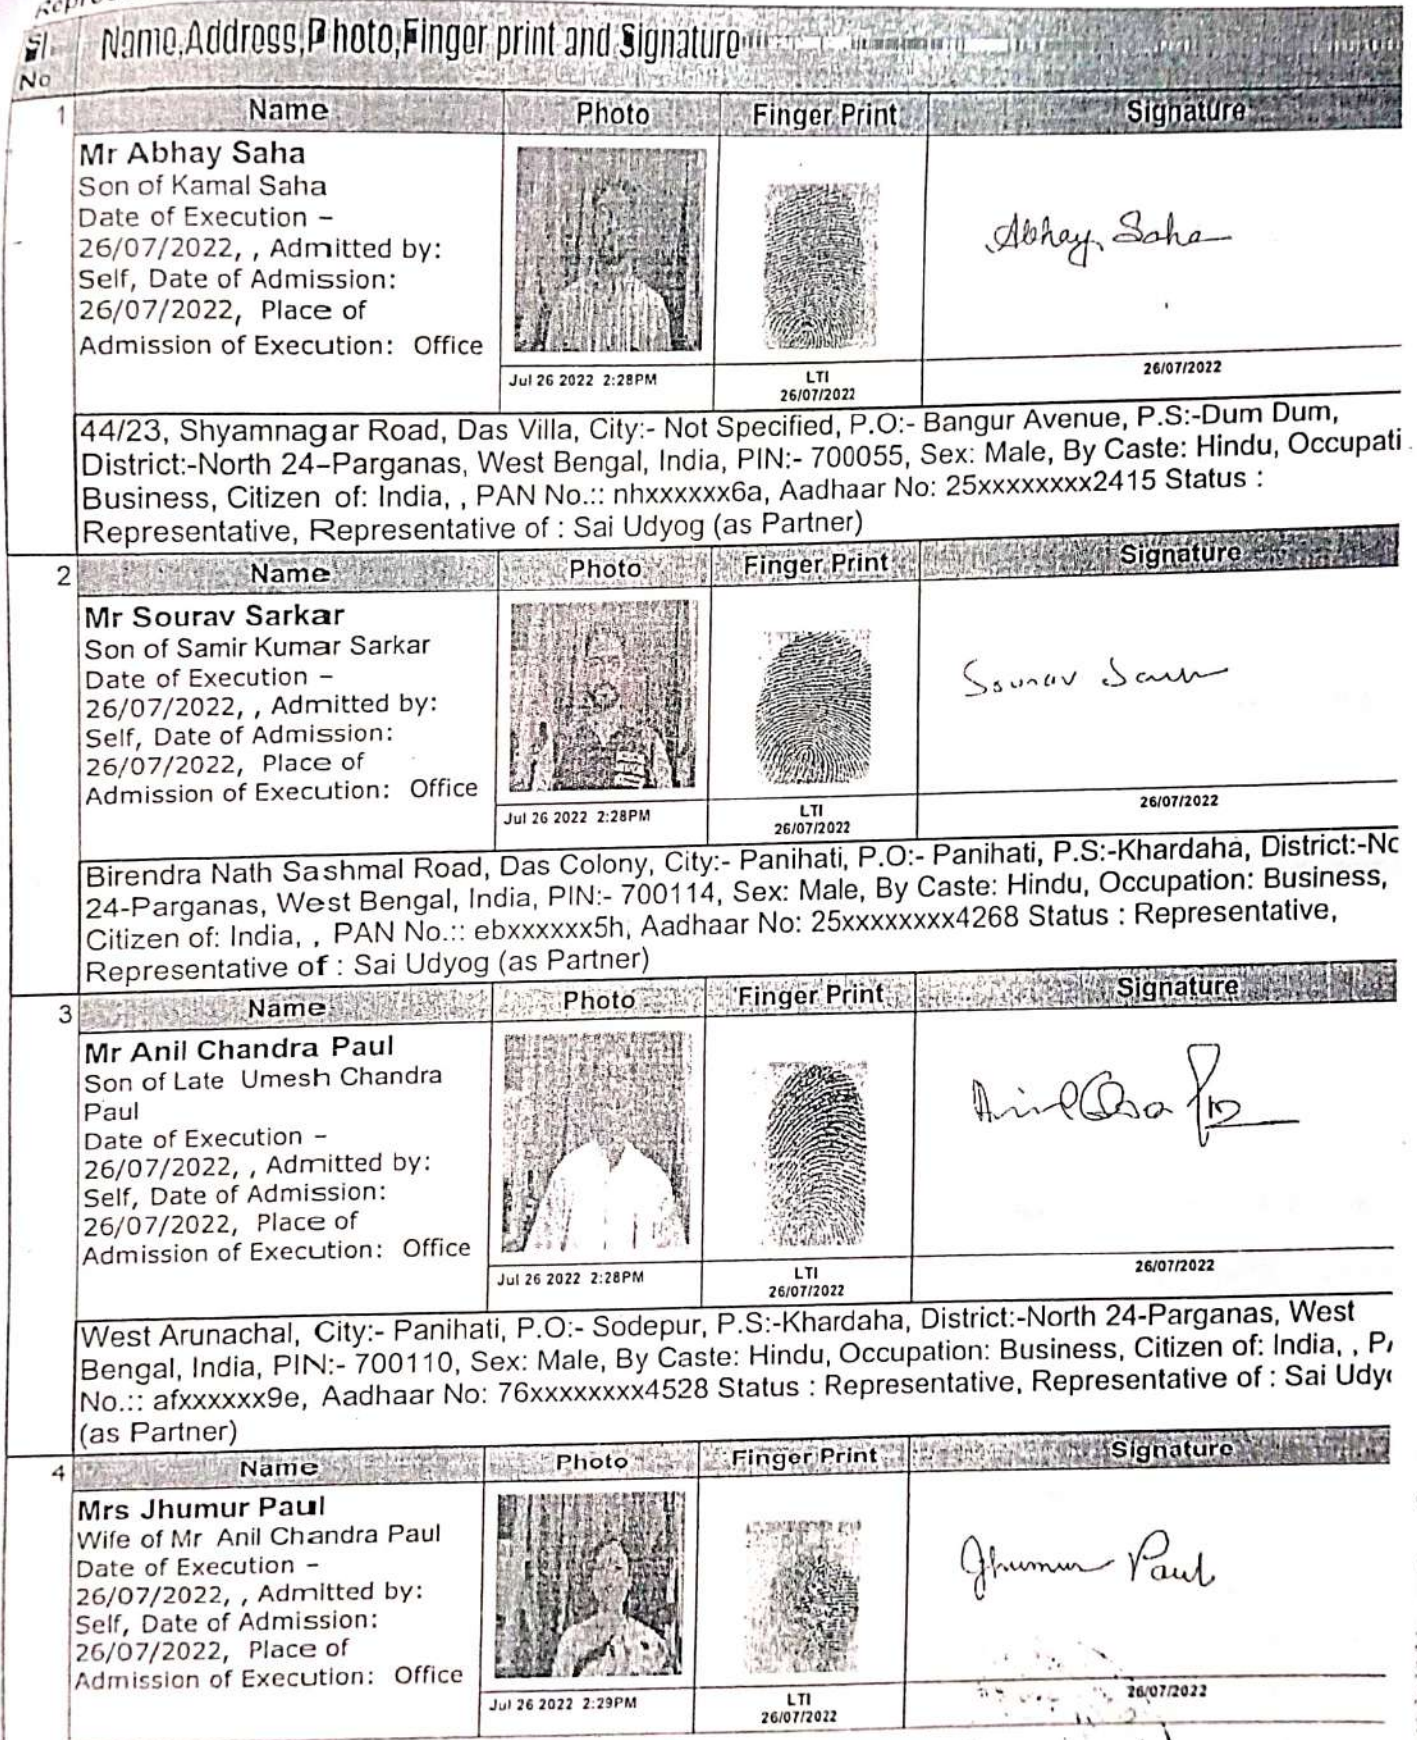 Sl No
Name,Address,Photo,Finger print and Signature
1
Name Photo Finger Print Signature
Mr Abhay Saha
Son of Kamal Saha
Date of Execution –
26/07/2022, , Admitted by:
Self, Date of Admission:
26/07/2022, Place of
Admission of Execution: Office
Abhay Saha
Jul 26 2022 2:28PM
LTI
26/07/2022
26/07/2022
44/23, Shyamnagar Road, Das Villa, City:- Not Specified, P.O:- Bangur Avenue, P.S:-Dum Dum,
District:-North 24-Parganas, West Bengal, India, PIN:- 700055, Sex: Male, By Caste: Hindu, Occupati
Business, Citizen of: India, , PAN No.:: nhxxxxxx6a, Aadhaar No: 25xxxxxxxx2415 Status :
Representative, Representative of : Sai Udyog (as Partner)
2
Name Photo Finger Print Signature
Mr Sourav Sarkar
Son of Samir Kumar Sarkar
Date of Execution –
26/07/2022, , Admitted by:
Self, Date of Admission:
26/07/2022, Place of
Admission of Execution: Office
Sourav
Jul 26 2022 2:28PM
LTI
26/07/2022
26/07/2022
Birendra Nath Sashmal Road, Das Colony, City:- Panihati, P.O:- Panihati, P.S:-Khardaha, District:-No
24-Parganas, West Bengal, India, PIN:- 700114, Sex: Male, By Caste: Hindu, Occupation: Business,
Citizen of: India, , PAN No.:: ebxxxxxx5h, Aadhaar No: 25xxxxxxxx4268 Status : Representative,
Representative of : Sai Udyog (as Partner)
3
Name Photo Finger Print Signature
Mr Anil Chandra Paul
Son of Late Umesh Chandra
Paul
Date of Execution –
26/07/2022, , Admitted by:
Self, Date of Admission:
26/07/2022, Place of
Admission of Execution: Office
Jul 26 2022 2:28PM
LTI
26/07/2022
26/07/2022
West Arunachal, City:- Panihati, P.O:- Sodepur, P.S:-Khardaha, District:-North 24-Parganas, West
Bengal, India, PIN:- 700110, Sex: Male, By Caste: Hindu, Occupation: Business, Citizen of: India, , PA
No.:: afxxxxxx9e, Aadhaar No: 76xxxxxxxx4528 Status : Representative, Representative of : Sai Udyo
(as Partner)
4
Name Photo Finger Print Signature
Mrs Jhumur Paul
Wife of Mr Anil Chandra Paul
Date of Execution –
26/07/2022, , Admitted by:
Self, Date of Admission:
26/07/2022, Place of
Admission of Execution: Office
Jhumur Paul
Jul 26 2022 2:29PM
LTI
26/07/2022
26/07/2022